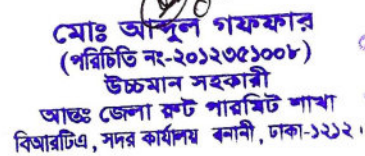 মোঃ আব্দুল গফফার
(পরিচিতি নং-২০১২৩৫১০০৮)
উচ্চমান সহকারী
আন্তঃ জেলা রুট পারমিট শাখা
বিআরটিএ, সদর কার্যালয় বনানী, ঢাকা-১২১২।